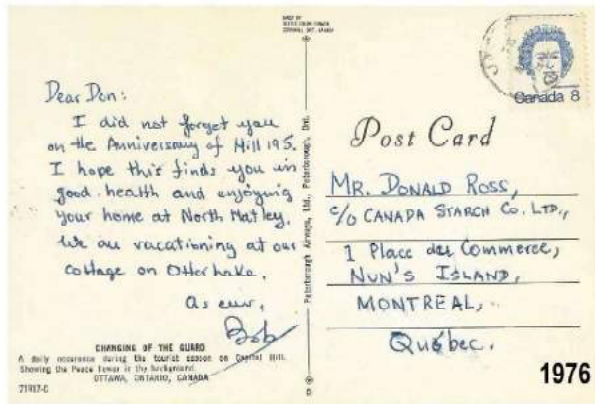 Dear Don:
I did not forget you
on the Anniversary of Hill 195.
I hope this finds you in
good health and enjoying
your home at North Hatley.
We are vacationing at our
cottage on Otter Lake.
As ever,
Bob
CHANGING OF THE GUARD
A daily occurance during the tourist season on Capital Hill.
Showing the Peace Tower in the background.
OTTAWA, ONTARIO, CANADA
71917-C
Peterborough Airways, Ltd., Peterborough, Ont.
Canada 8
Post Card
MR. DONALD ROSS,
c/o CANADA STARCH CO. LTD.,
1 Place du Commerce,
NUN'S ISLAND,
MONTREAL,
Québec.
1976